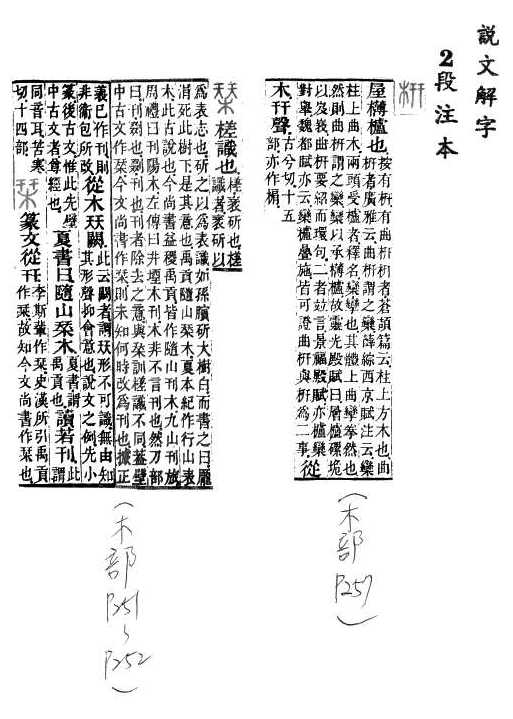 說文解字
2段注本
枅
屋欂櫨也。按有枅有曲枅枅者蒼頡篇云柱上方木也曲
枅者廣雅云曲枅謂之欒薛綜西京賦注云欒
柱上曲木兩頭受櫨者釋名欒攣也其體上曲攣拳然也
然則曲枅謂之欒欒以承欂櫨故靈光殿賦曰層櫨磥垝
以岌峩曲枅要紹而環句二者竝言景福殿賦亦櫨欒
對舉魏都賦亦云欒櫨疊施皆可證曲枅與枅為二事。從
木幵聲。古兮切十五
部亦作
(木部 P257)
栞
槎識也。槎衺斫也槎
識者衺斫以
為表志也斫之以為表識如孫臏斫大樹白而書之曰龐
涓死此樹下是其意也禹貢隨山栞木夏本紀作行山表
木此古說也今尚書益稷禹貢皆作隨山刊木九山刊旅
周禮曰刊陽木左傳曰井堙木刊木非不言刊也然刀部
曰刊剟也剟刊也刊者除去之意與栞訓槎識不同蓋壁
中古文作栞今文尚書作栞則未知何時改為刊也據正
義已作刊則
非衞包所改
從木㺿闕。此云闕者謂㺿形不可識無由知
其形聲抑會意也說文之例先小
篆後古文惟此先壁
中古文者尊經也。
夏書曰隨山栞木。夏書謂
禹貢也。
讀若刊。此
謂
同音耳苦寒
切十四部。
栞
篆文從幵。李斯輩作栞史漢所引禹貢
作栞故知今文尚書作栞也
(木部 P251~P252)